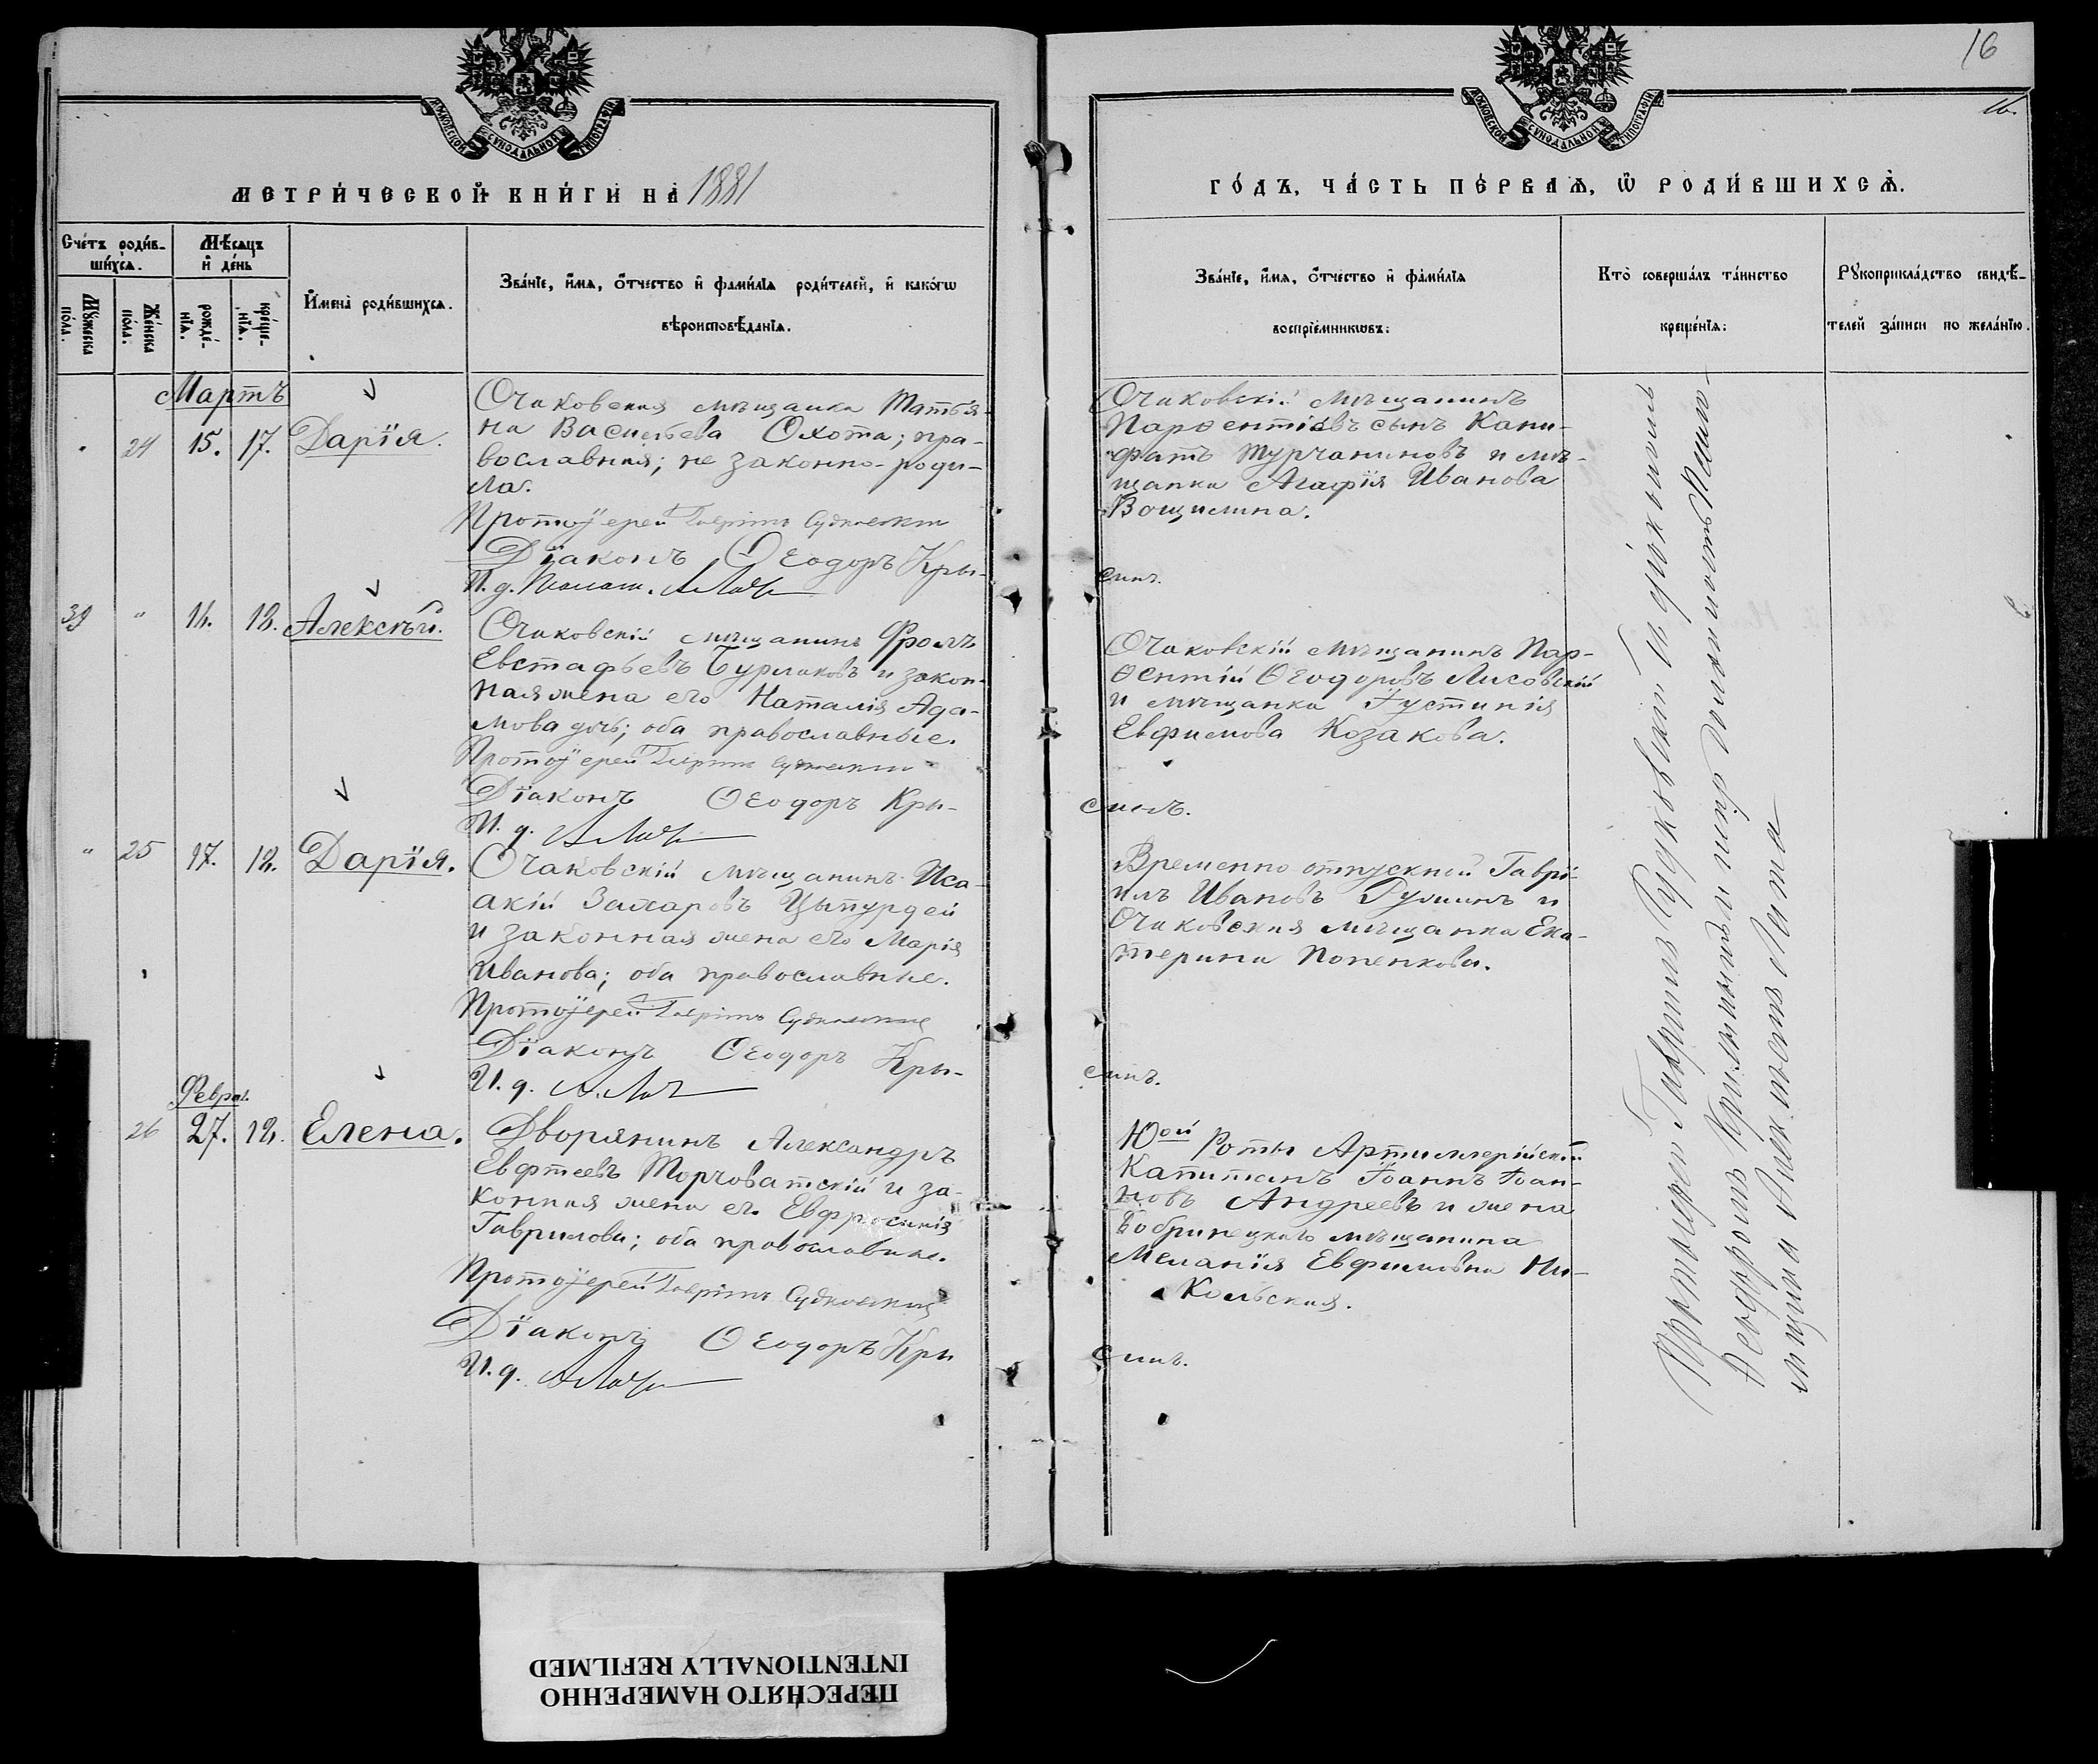 16
16.
МОСКОВСКОЙ СѴНОДАЛЬНОЙ ТИПОГРАФІИ
МОСКОВСКОЙ СѴНОДАЛЬНОЙ ТИПОГРАФІИ
МЕТРИ́ЧЕСКОЙ КНИ́ГИ НА 1881
ГО́ДЪ, ЧА́СТЬ ПЕ́РВАѦ, Ѡ РОДИ́ВШИХСѦ.
Сче́тъ роди́в-
шихсѧ.
Мѣсѧцъ
и де́нь
Мꙋжеска
по́ла.
Же́нска
по́ла.
рожде́-
нїѧ.
креще-
нїѧ.
Имена̀ роди́вшихсѧ.
Зва́нїе, и́мѧ, о́тчество и фами́лїѧ роди́телей, и како́гѡ
вѣроисповѣ́данїѧ.
Зва́нїе, и́мѧ, о́тчество и фами́лїѧ
воспрїе́мникѡвъ.
Кто̀ соверша́лъ та́инство
креще́нїѧ.
Рꙋкоприкла́дство свидѣ́-
телей за́писи по жела́нїю.
Мартъ
24 15. 17. Дарія.
Очаковская мѣщанка Татья-
на Васильева Охота; пра-
вославная; не законно-роди-
ла.
Протоіерей Гавріилъ Судковскій
Діаконъ Ѳеодоръ Кры-
И. д. Псалом.
Очаковскій мѣщанинъ
Парѳентіевъ сынъ Кани-
фатъ Турчаниновъ и мѣ-
щанка Агафія Иванова
Вощилина.
синъ.
39 " 16. 18. Алексѣй.
Очаковскій мѣщанинъ Фролъ
Евстафьевъ Бурлаковъ и закон-
ная жена его Наталія Ада-
мова дочь; оба православные.
Протоіерей Гавріилъ Судковскій
Діаконъ Ѳеодоръ Кры-
И. д.
Очаковскій мѣщанинъ Пар-
ѳентій Ѳеодоровъ Лисовскій
и мѣщанка Іустинія
Евфимова Козакова.
синъ.
" 25 17. 18. Дарія.
Очаковскій мѣщанинъ Иса-
акій Захаровъ Цыпурдей
и законная жена его Марія
Иванова; оба православные.
Протоіерей Гавріилъ Судковскій
Діаконъ Ѳеодоръ Кры-
И. д.
Временно отпускной Гаврі-
илъ Ивановъ Руминъ и
Очаковская мѣщанка Ека-
терина Попенкова.
синъ.
Феврал.
26 27. 18. Елена.
Дворянинъ Александръ
Евфтеевъ Торчоватскій и за-
конная жена ег. Евфросинія
Гаврилова; оба православные.
Протоіерей Гавріилъ Судковскій
Діаконъ Ѳеодоръ Кры
И. д.
Роты Артиллерійскій
Капитанъ Іоаннъ Іоан-
новъ Андреевъ и жена
Бобринецкаго мѣщанина
Меланія Евфимовна Ни-
кольская.
синъ.
Протоіерей Гавріилъ Судковскій и діаконъ
Ѳеодоръ Крысинъ
ПЕРЕСНЯТО НАМЕРЕННО
INTENTIONALLY REFILMED